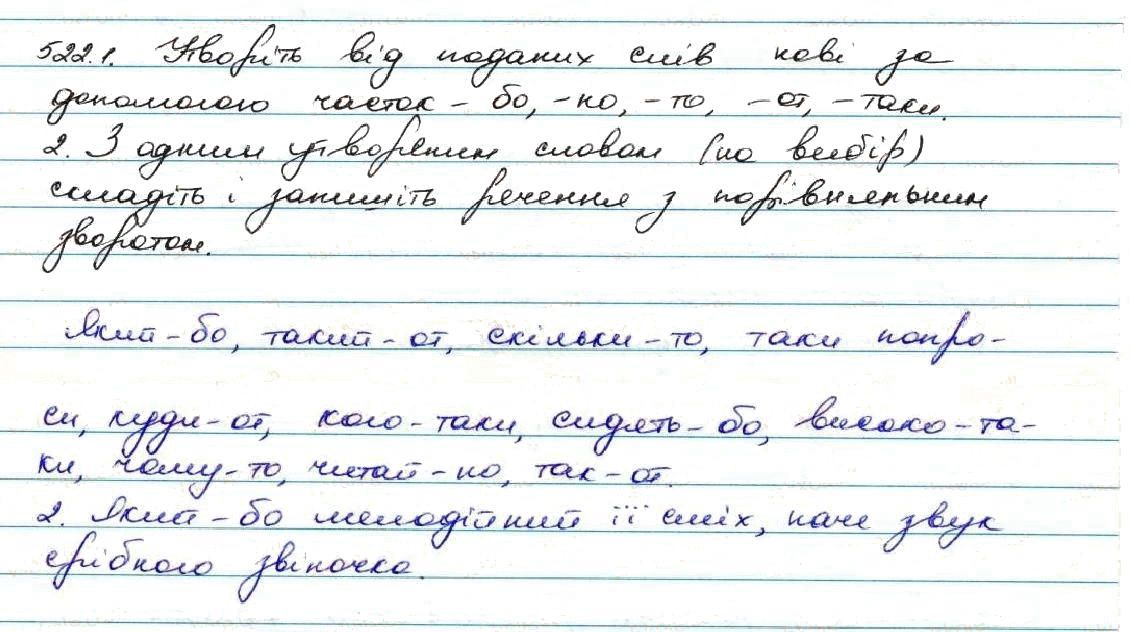 522.1. Утворіть від поданих слів нові за
допомогою часток - бо, -но, -то, -от, -таки.
2. З одним утвореним словом (на вибір)
складіть і запишіть речення з порівняльним
зворотом.
Який-бо, такий-от, скільки-то, таки попро-
си, куди-от, кого-таки, сидять-бо, високо-та-
ки, чому-то, читай-но, так-от.
2. Який-бо мелодійний її сміх, наче звук
срібного дзвіночка.